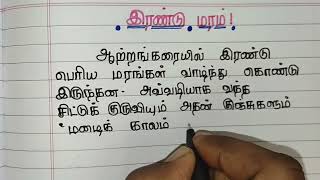 இரண்டு மரம்!
ஆற்றங்கரையில் இரண்டு
பெரிய மரங்கள் வாழ்ந்து கொண்டு
இருந்தன. அவ்வழியாக வந்த
சிட்டுக் குருவியும் அதன் குஞ்சுகளும்
"மழைக் காலம்